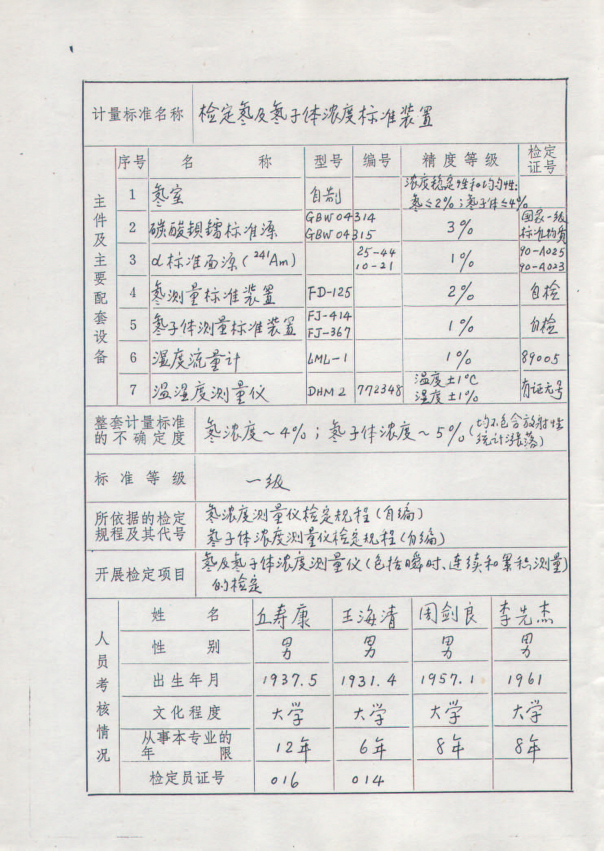 计量标准名称 检定氡及氡子体浓度标准装置
主件及主要配套设备
序号 名称 型号 编号 精度等级 检定证号
1 氡室 自制 浓度稳定性和均匀性:
氡≤2%;氡子体≤4%
2 碳酸钡镭标准源 GBW04314 3% 国家一级
GBW04315 标准物质
3 α标准面源(²⁴¹Am) 25-44 1% 90-A025
10-21 90-A023
4 氡测量标准装置 FD-125 2% 自检
5 氡子体测量标准装置 FJ-414 1% 自检
FJ-367
6 湿度流量计 LML-1 1% 89005
7 温湿度测量仪 DHM2 772348 温度±1℃ 有证无号
湿度±1%
整套计量标准
的不确定度 氡浓度~4%;氡子体浓度~5%(均不包含放射性
统计涨落)
标准等级 一级
所依据的检定 氡浓度测量仪检定规程(自编)
规程及其代号 氡子体浓度测量仪检定规程(自编)
开展检定项目 氡及氡子体浓度测量仪(包括瞬时、连续和累积测量)
的检定
人员考核情况
姓名 丘寿康 王海清 周剑良 李先杰
性别 男 男 男 男
出生年月 1937.5 1931.4 1957.1 1961
文化程度 大学 大学 大学 大学
从事本专业的
年限 12年 6年 8年 8年
检定员证号 016 014